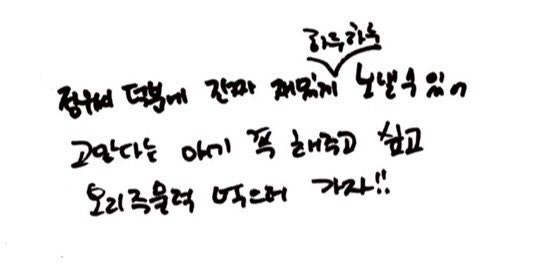 하루하루
정우씨 덕분에 진짜 재밌게 보낼 수 있어
고맙다는 얘기 꼭 해주고 싶고
오리주물럭 먹으러 가자!!